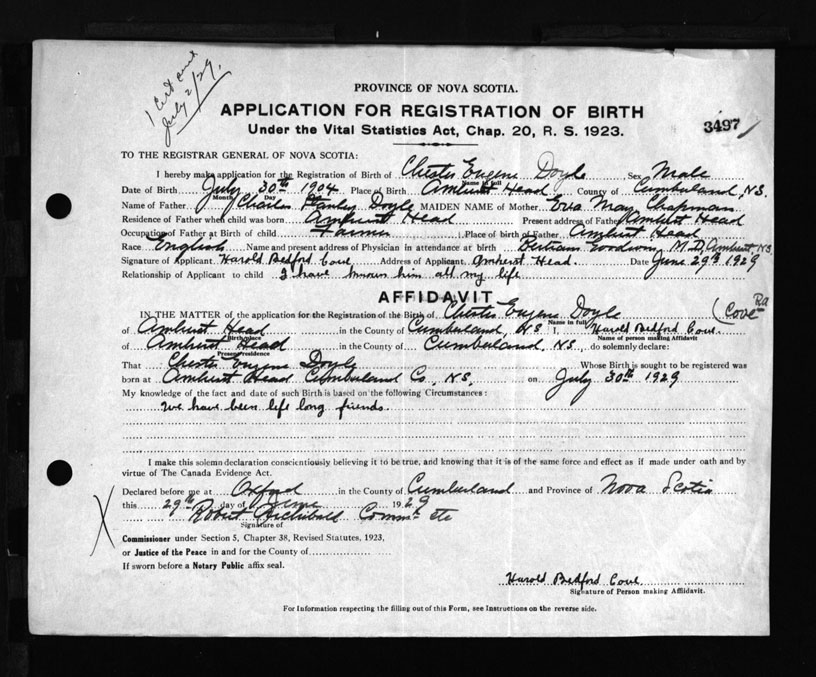 1 Cert cert
July 2/29.
PROVINCE OF NOVA SCOTIA.
APPLICATION FOR REGISTRATION OF BIRTH
Under the Vital Statistics Act, Chap. 20, R. S. 1923.
3497
TO THE REGISTRAR GENERAL OF NOVA SCOTIA:
I hereby make application for the Registration of Birth of Chester Eugene Doyle Sex Male
Name in full
Date of Birth July 30th 1904 Place of Birth Amherst Head County of Cumberland, NS.
Month Day
Name of Father Charles Stanley Doyle MAIDEN NAME of Mother Eva May Chapman
Residence of Father when child was born Amherst Head Present address of Father Amherst Head
Occupation of Father at Birth of child Farmer Place of birth of Father Amherst Head
Race English Name and present address of Physician in attendance at birth Bertram Goodwin, M.D, Amherst, NS.
Signature of Applicant Harold Bedford Cove Address of Applicant Amherst Head. Date June 29th 1929
Relationship of Applicant to child I have known him all my life
AFFIDAVIT
IN THE MATTER of the application for the Registration of the Birth of Chester Eugene Doyle (Cove
Name in full
of Amherst Head in the County of Cumberland, NS I, Harold Bedford Cove
Birthplace Name of person making Affidavit
of Amherst Head in the County of Cumberland, NS, do solemnly declare:
Present residence
That Chester Eugene Doyle Whose Birth is sought to be registered was
born at Amherst Head Cumberland Co., NS, on July 30th 1929
My knowledge of the fact and date of such Birth is based on the following Circumstances:
We have been life long friends.
I make this solemn declaration conscientiously believing it to be true, and knowing that it is of the same force and effect as if made under oath and by
virtue of The Canada Evidence Act.
Declared before me at Oxford in the County of Cumberland and Province of Nova Scotia
this 29th day of June 1929
Robert Archibald Commr etc
Signature of
Commissioner under Section 5, Chapter 38, Revised Statutes, 1923,
or Justice of the Peace in and for the County of
If sworn before a Notary Public affix seal.
Harold Bedford Cove
Signature of Person making Affidavit.
For Information respecting the filling out of this Form, see Instructions on the reverse side.